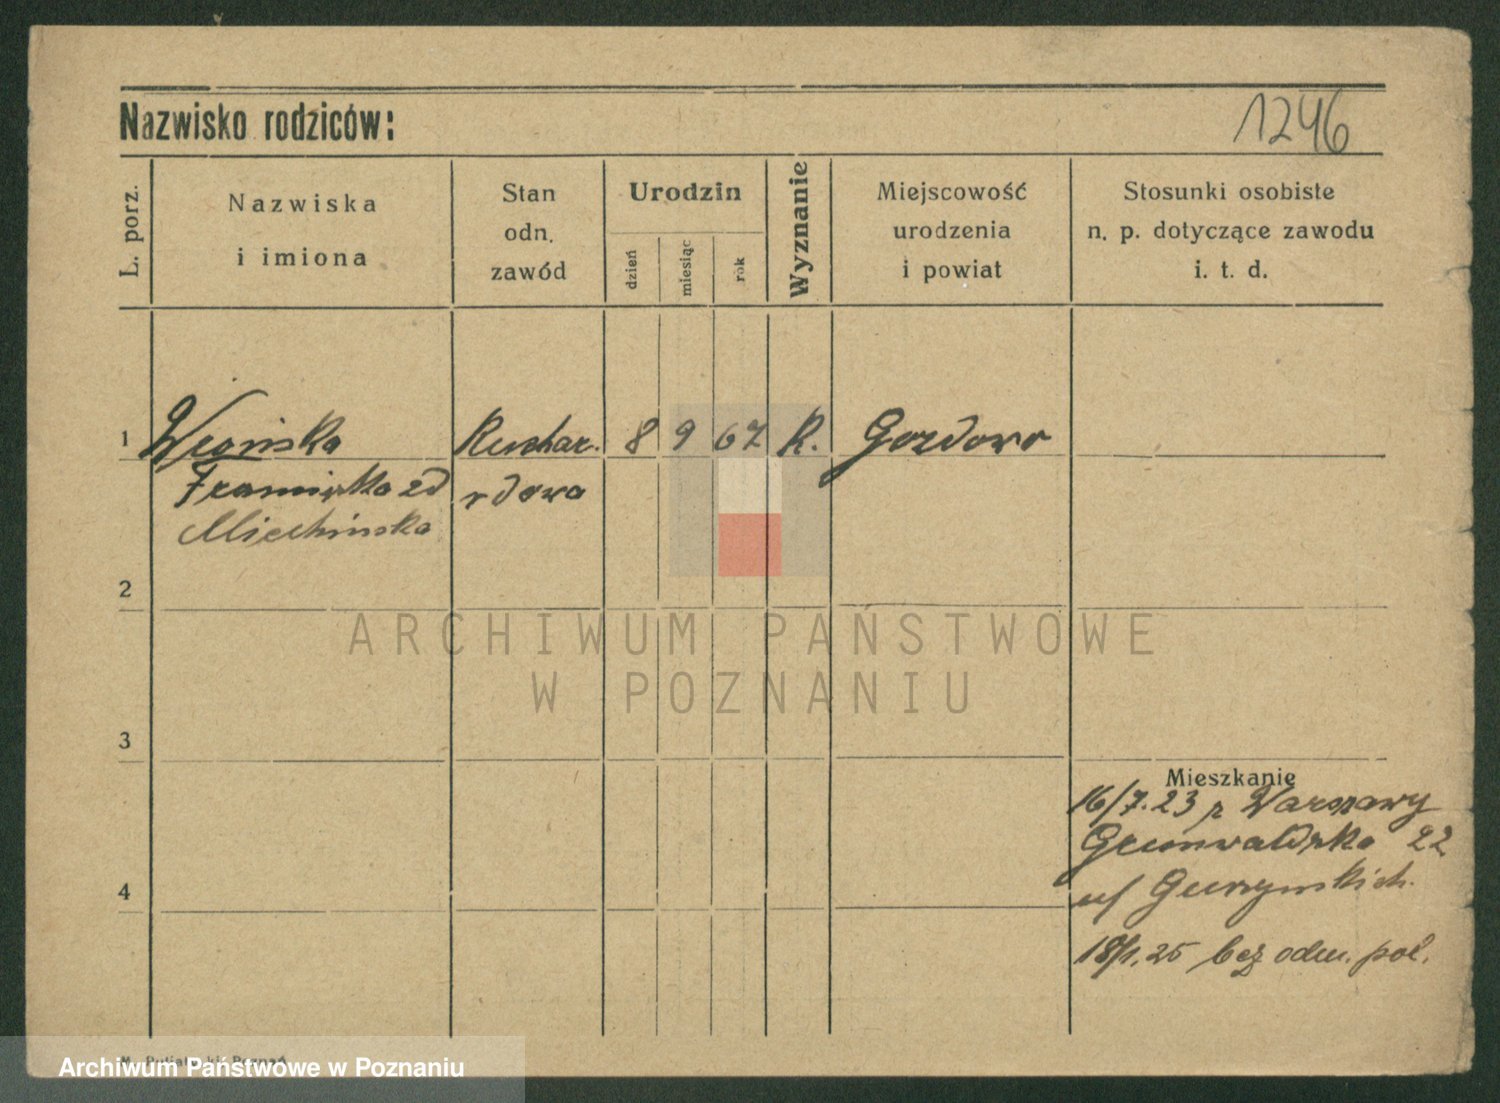 Nazwisko rodziców:
1246
L. porz.
Nazwiska
i imiona
Stan
odn.
zawód
Urodzin
dzień
miesiąc
rok
Wyznanie
Miejscowość
urodzenia
i powiat
Stosunki osobiste
n. p. dotyczące zawodu
i. t. d.
1
Kuchar.
8 9 67 R.
rdowa
Miechińska
2
3
4
Mieszkanie
16/7.23 z Warszawy
Grunwaldzka 22
18/1.25 bez odm. pol.
ARCHIWUM PAŃSTWOWE
W POZNANIU
Archiwum Państwowe w Poznaniu